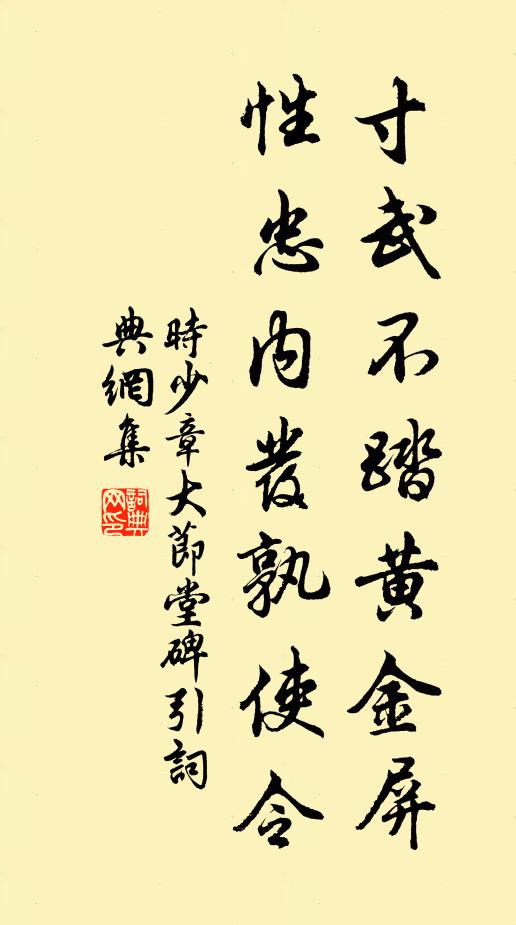 寸武不踏黄金屏
性忠内發孰使令
時少章大節堂碑引詞
典網集
詞典網印